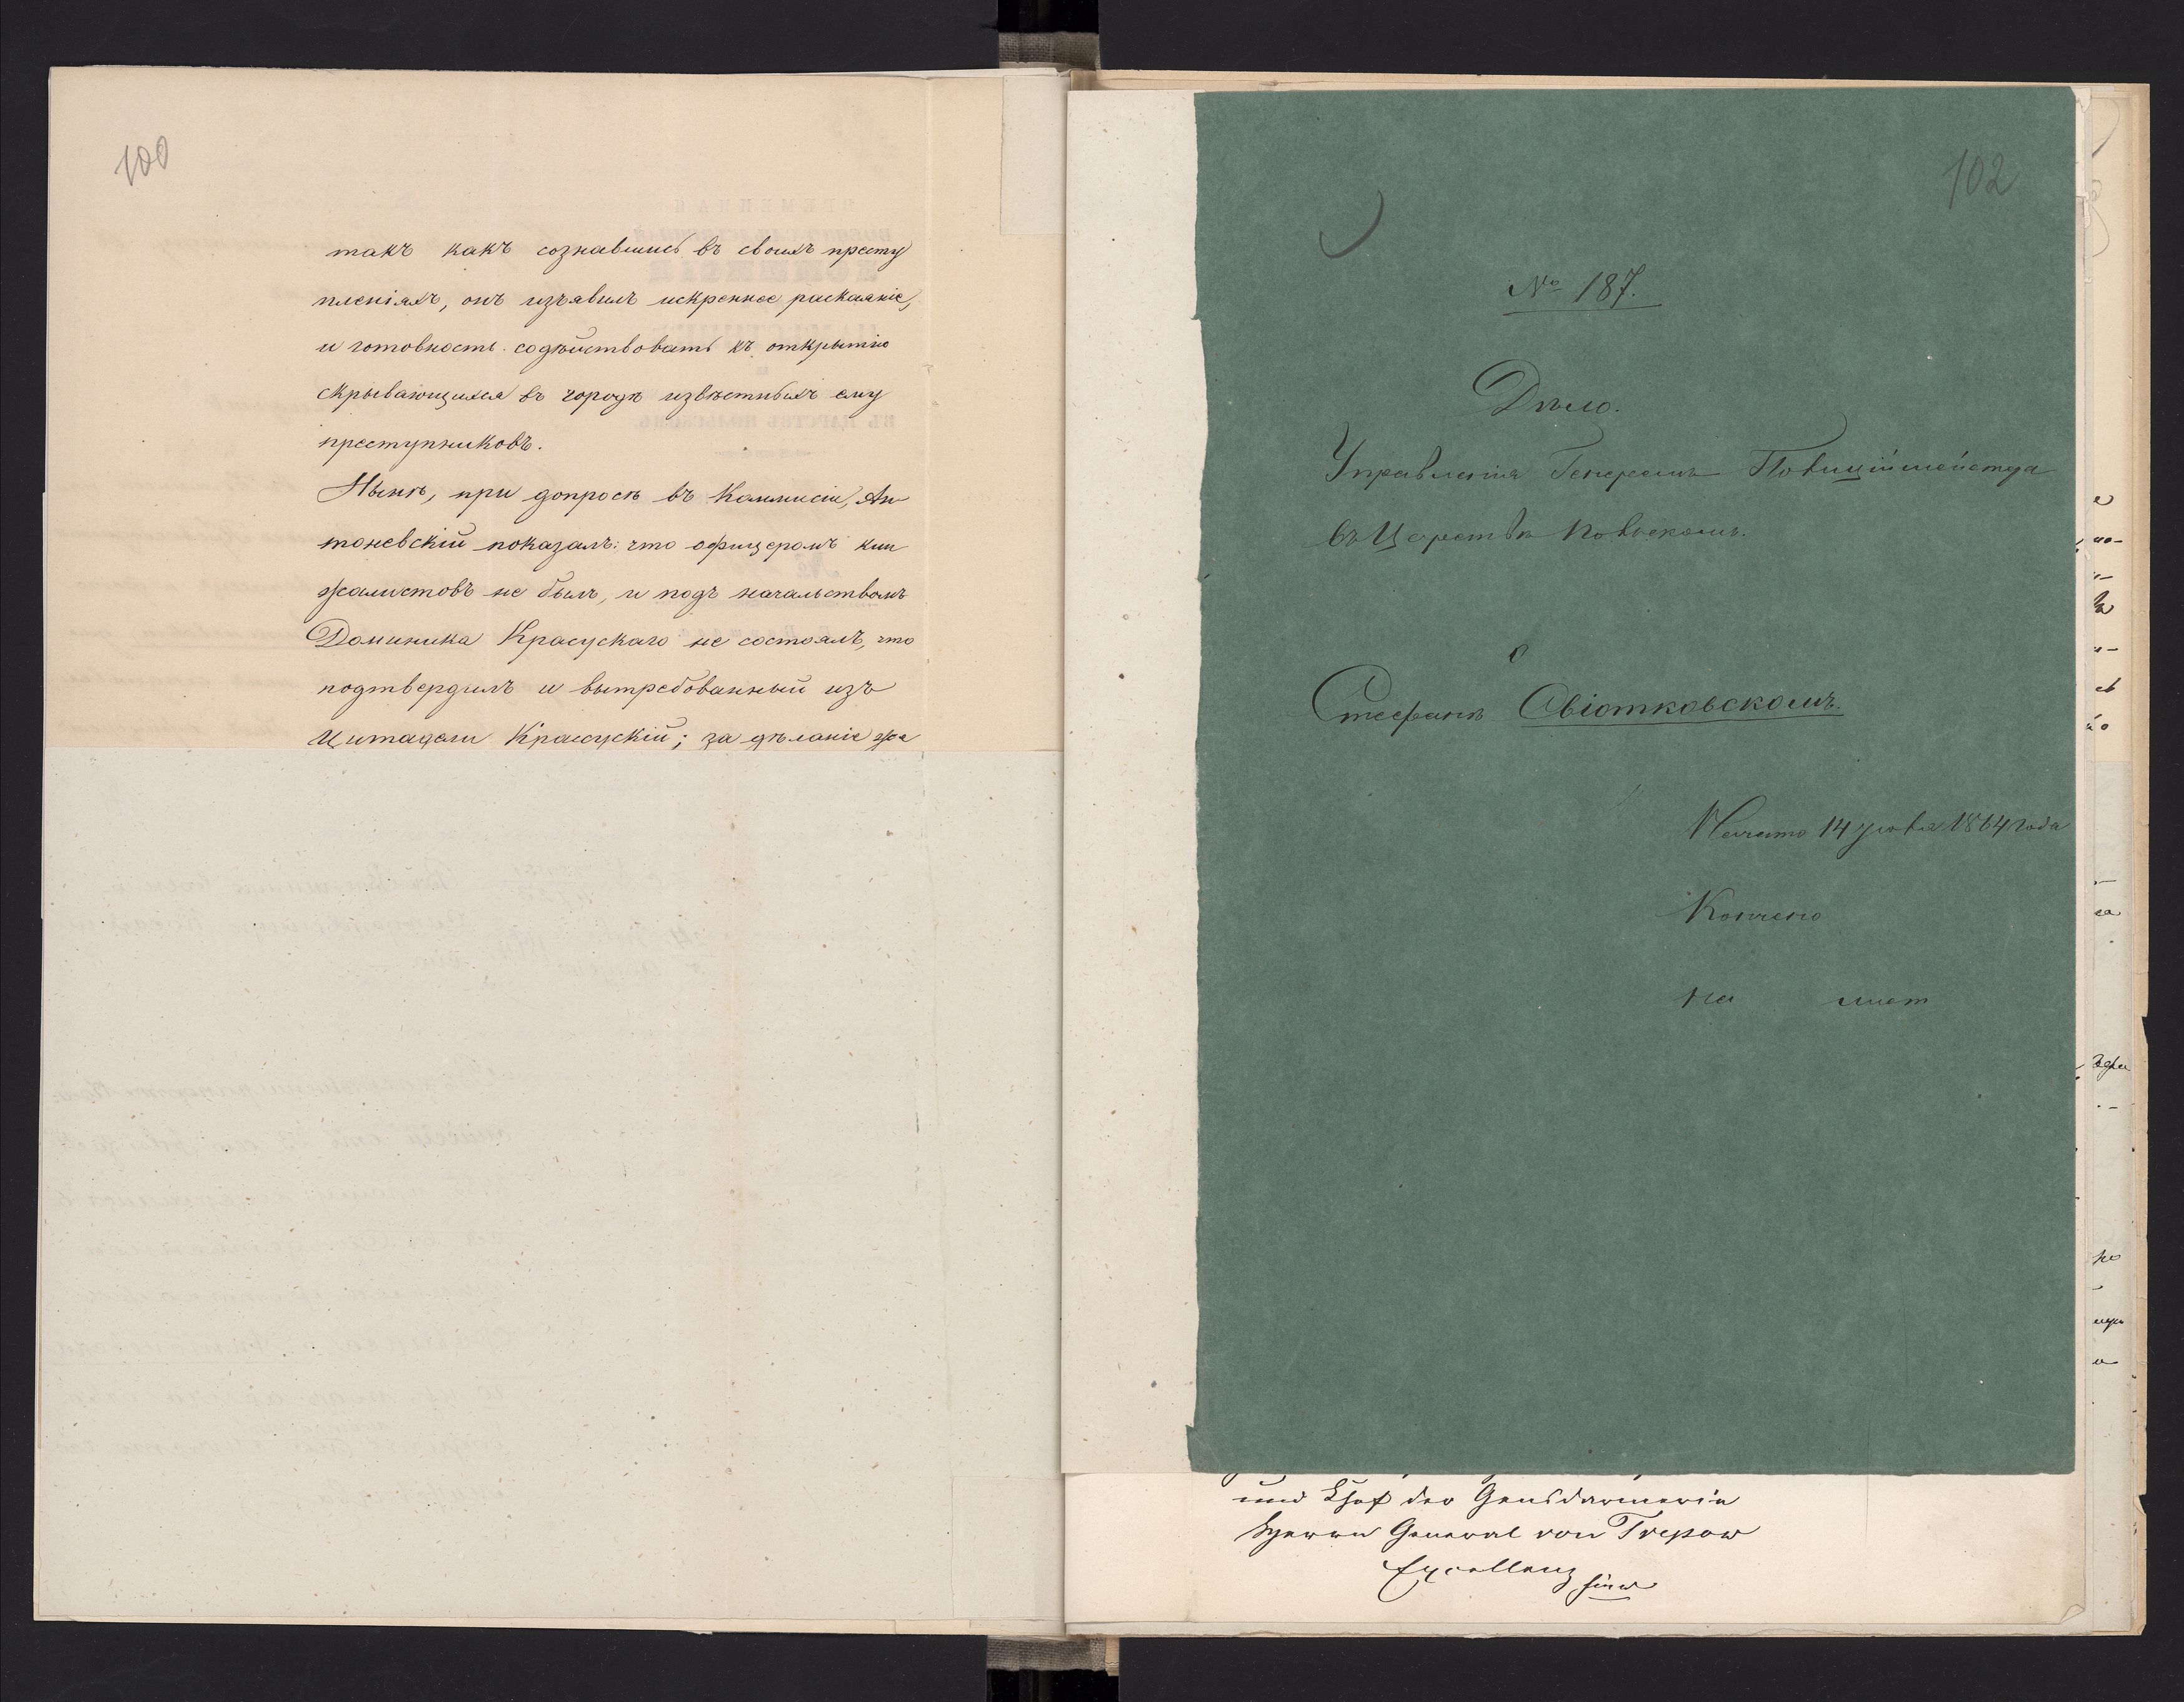 100
такъ какъ сознавшись въ своихъ престу
пленіяхъ, онъ изъявилъ искреннее раскаяніе,
и готовность содѣйствовать къ открытію
скрывающихся въ городѣ извѣстныхъ ему
преступниковъ.
Нынѣ, при допросѣ въ Коммисіи, Ан
тоневскій показалъ: что офицеромъ кин
жалистовъ не былъ, и подъ начальствомъ
Доминика Красускаго не состоялъ, что
подтвердилъ и вытребованный изъ
Цитадели Красускій; за дѣланіе же
102
№ 187.
Дѣло.
Управленія Генералъ Полицiймейстра
въ Царствѣ Польскомъ.
о
Стефанѣ Свіотковскомъ.
Начато 14 1864 года
Кончено
на лист
und Chef der Gensdarmerie
Herrn General von Trepow
Excellenz